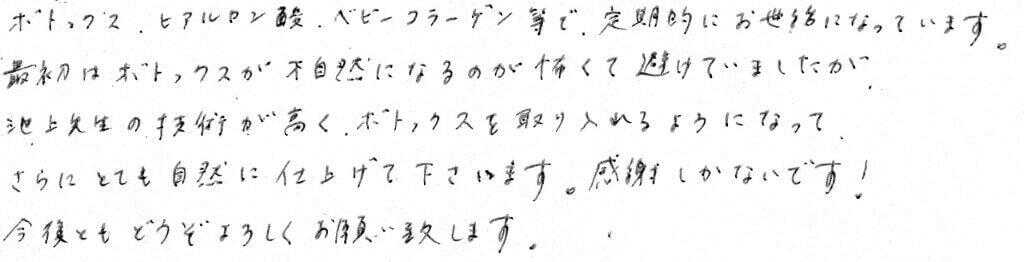 ボトックス、ヒアルロン酸、ベビーコラーゲン等で、定期的にお世話になっています。
最初はボトックスが不自然になるのが怖くて避けていましたが、
池上先生の技術が高く、ボトックスを取り入れるようになって、
さらにとても自然に仕上げて下さいます。感謝しかないです!
今後ともどうぞよろしくお願い致します。